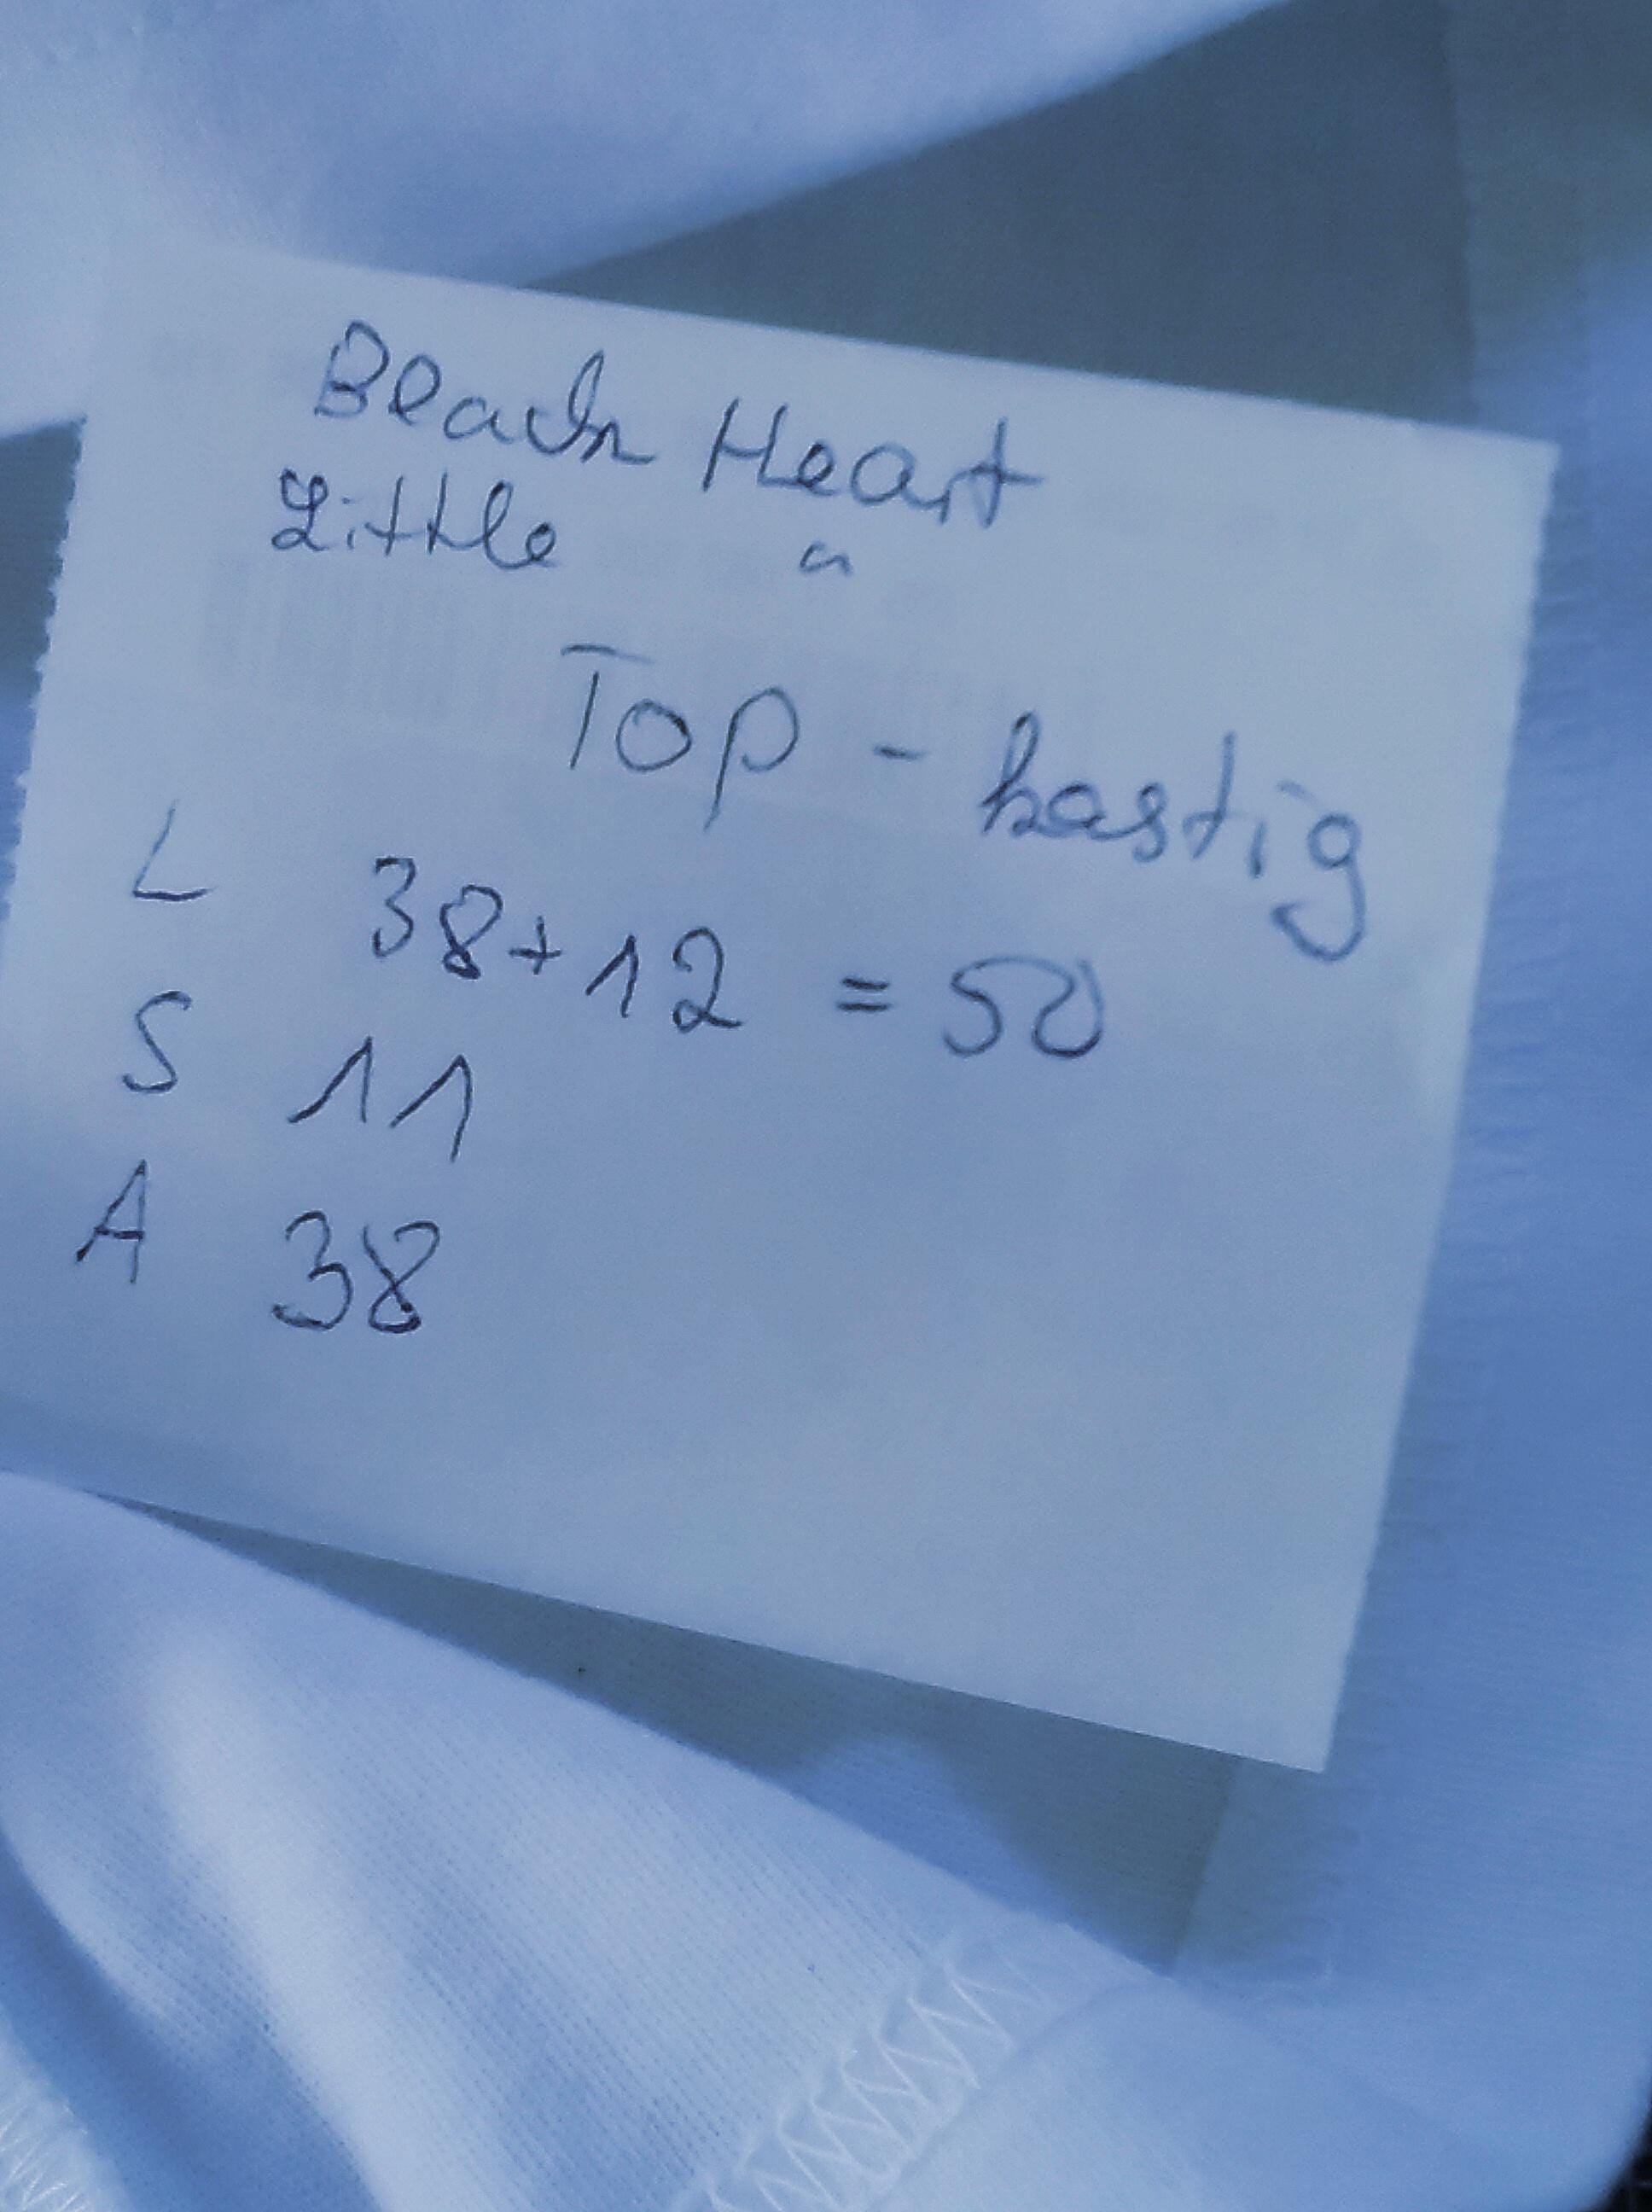 Beach Heart
Little "
Top - hastig
L 38+12 = 50
S 11
A 38